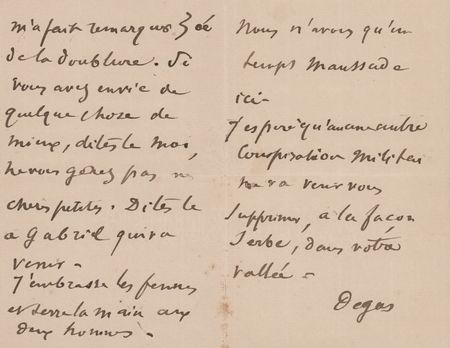 m'a fait remarquer Zoé
de la doublure. Si
vous avez envie de
quelque chose de
mieux, dites le moi,
ne vous gênez pas
chers petites. Dites le
a Gabriel qui va
venir -
J'embrasse les femmes
et serre la main aux
deux hommes -
Nous n'avons qu'un
temps maussade
ici -
J'espère qu'aucune autre
Conspiration militai
ne va venir vous
supprimer, à la façon
Serbe, dans votre
vallée -
Degas